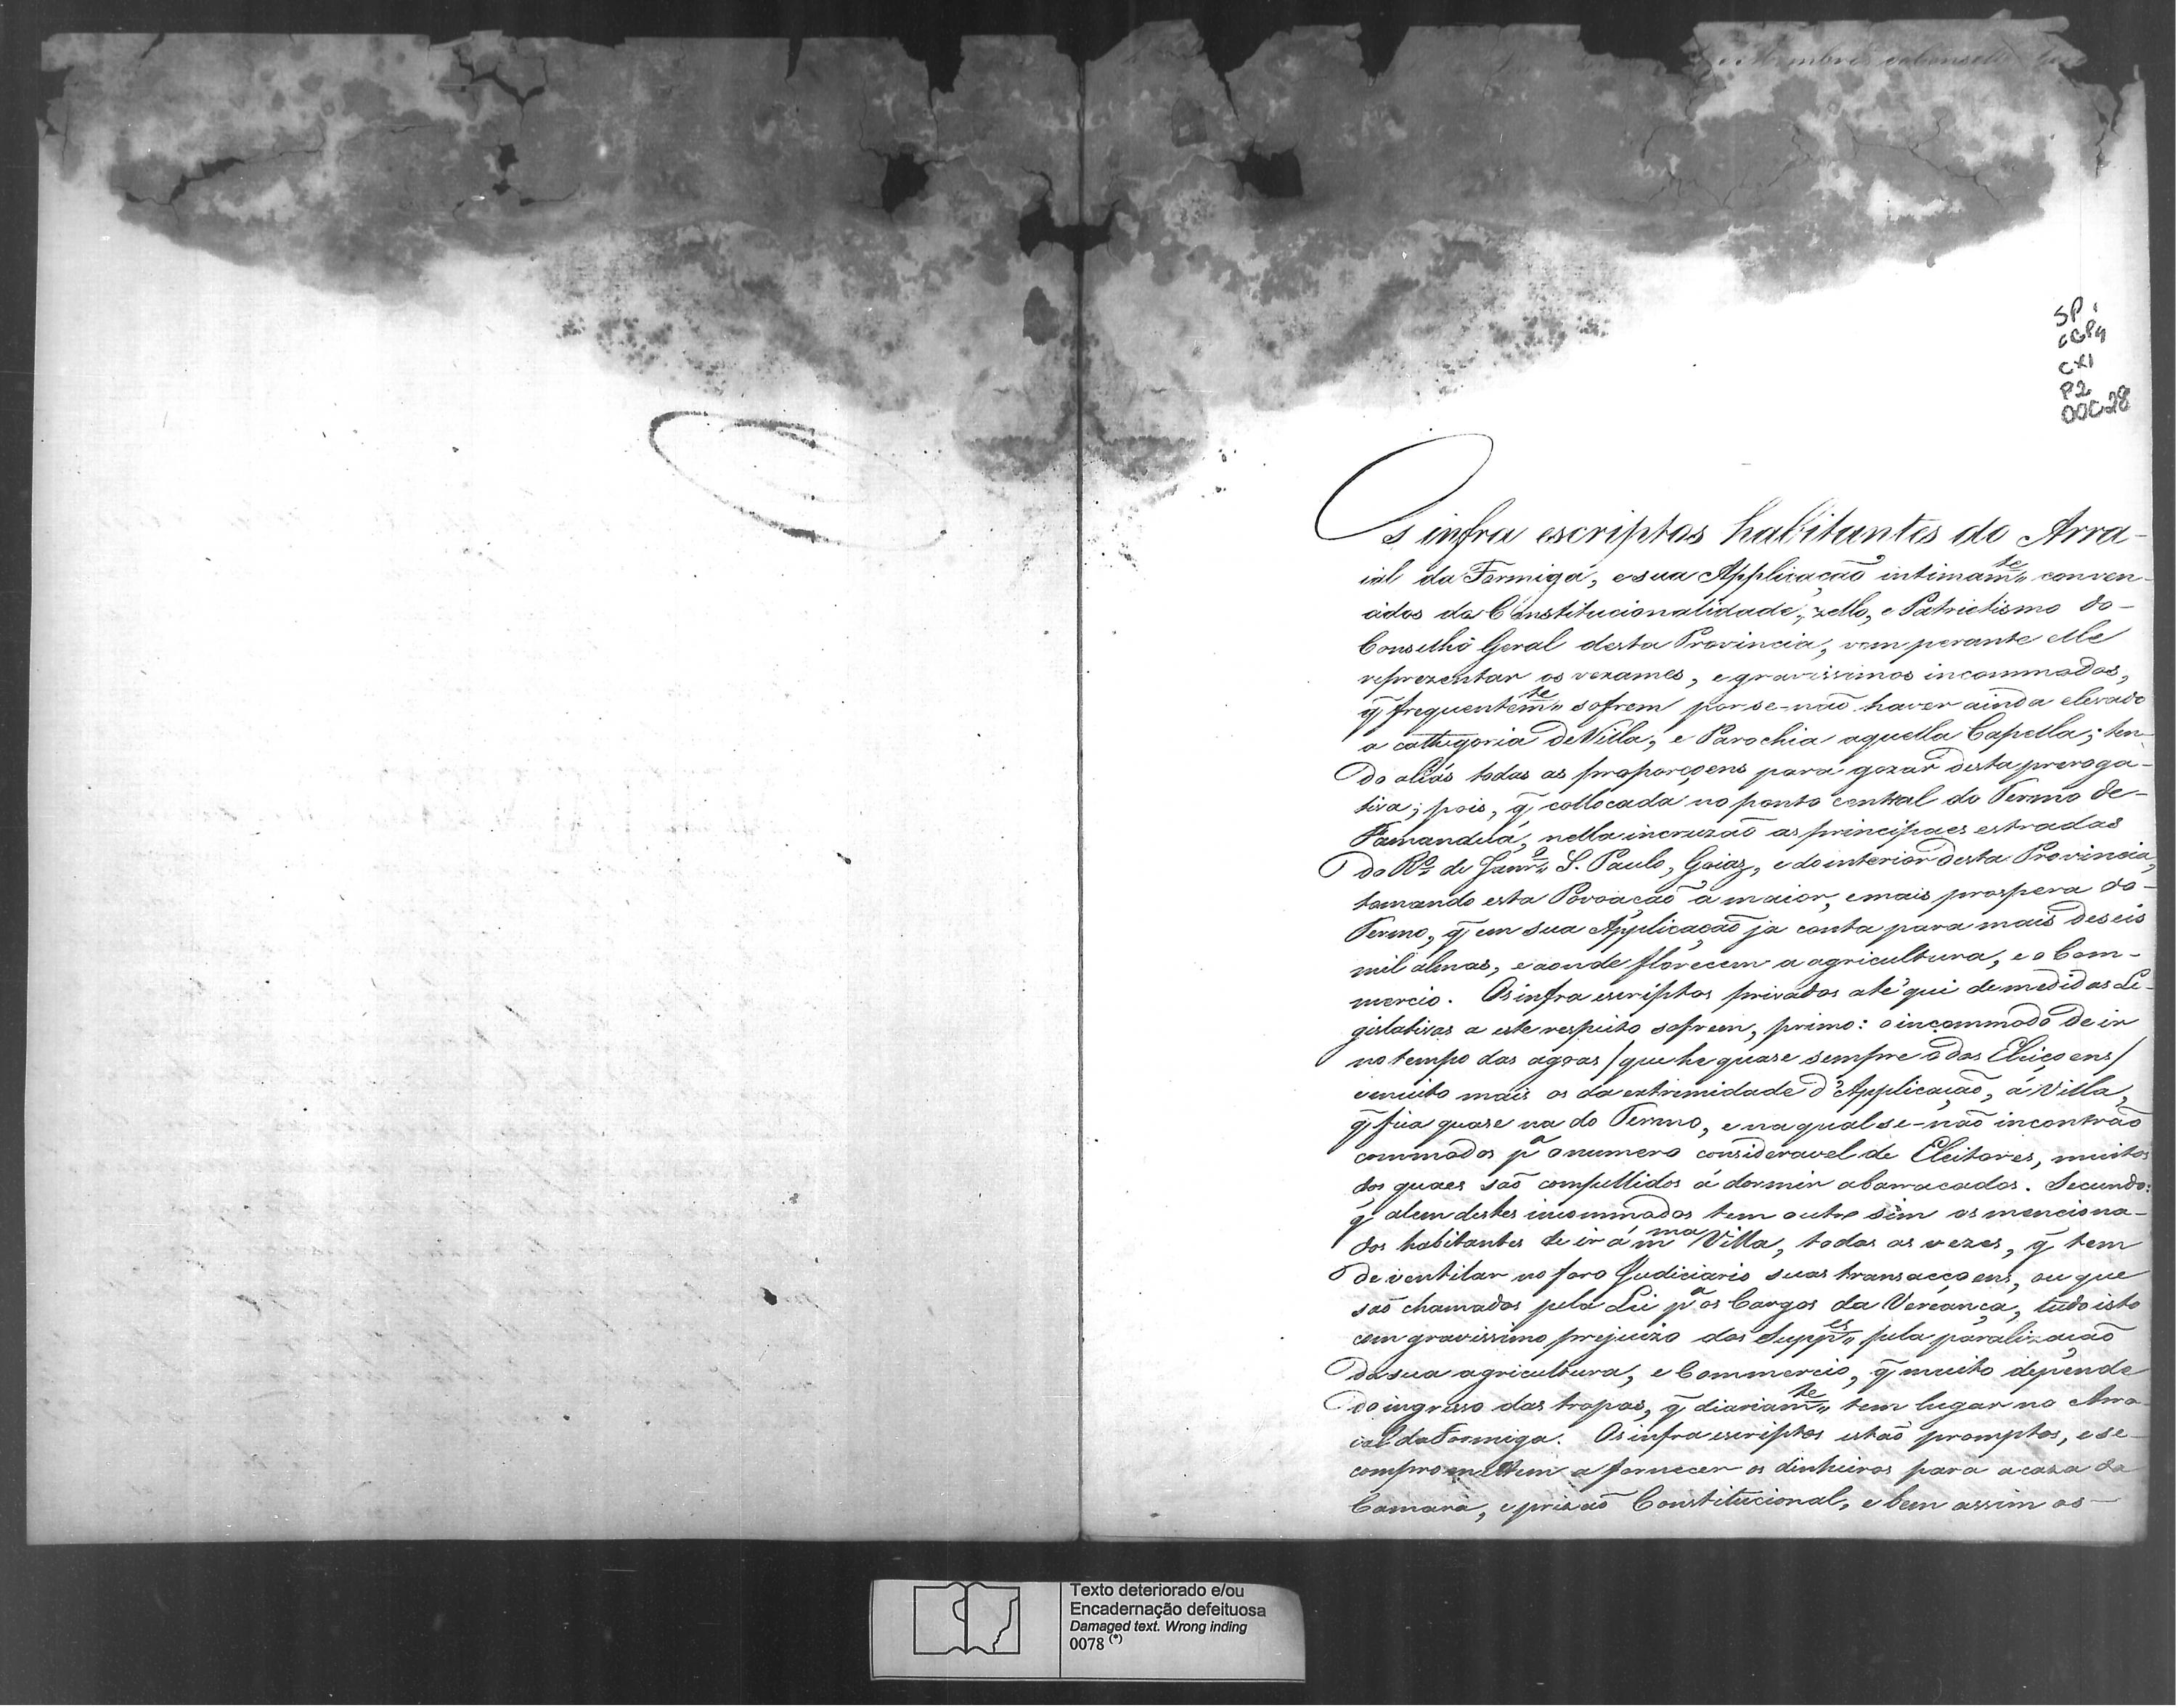 SP
CX1
P2
DOC28
Os infra escriptos habitantes do Arra-
ial da Formiga, e sua Applicação intimam.te conven-
cidos da Constitucionalidade, zello, e Patriotismo do
Conselho Geral desta Provincia, vem perante elle
reprezentar os vexames, e gravissimos incommodos,
q̃ frequentem.te sofrem por se-não haver ainda elevado
a cathegoria de Villa, e Parochia aquella Capella; ten-
do aliás todas as proporçoens para gozar desta preroga-
tiva; pois, q̃ collocada no ponto central do Termo de
Tamanduá, nella incruzão as principaes estradas
do R.º de Janr.º S. Paulo, Goiaz, e do interior desta Provincia,
tornando esta Povoação a maior, e mais prospera do
Termo, q̃ em sua Applicação ja conta para mais de seis
mil almas, e aonde florecem a agricultura, e o Com-
mercio. Os infra escriptos privados até'qui de medidas Le-
gislativas a este respeito sofrem, primo: o incommodo de ir
no tempo das agoas / que he quase sempre o das Eleiçoens /
e muito mais os da extremidade d'Applicação, á Villa,
q̃ fica quase na do Termo, e na qual se-não incontrão
commodos p.ª o numero consideravel de Eleitores, muitos
dos quaes são compellidos á dormir abarracados. Secundo:
q̃ alem destes incommodos tem outro sim os menciona-
dos habitantes de ir á m.ma Villa, todas as vezes, q̃ tem
de ventilar no foro Judiciario suas transacçoens, ou que
são chamados pela Lei p.ª os Cargos da Vereança, tudo isto
com gravissimo prejuizo dos Supp.es pela paralização
da sua agricultura, e Commercio, q̃ muito depende
do ingresso das tropas, q̃ diariam.te tem lugar no Arra-
ial da Formiga. Os infra escriptos estão promptos, e se
compromettem a fornecer os dinheiros para a caza da
Camara, e prizão Constitucional, e bem assim os
Texto deteriorado e/ou
Encadernação defeituosa
Damaged text. Wrong inding
0078 (*)